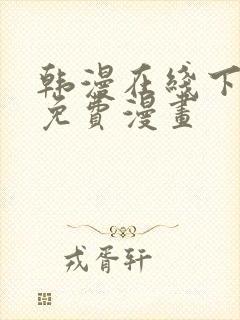 韩漫在线下
免费漫畫
戎胥轩